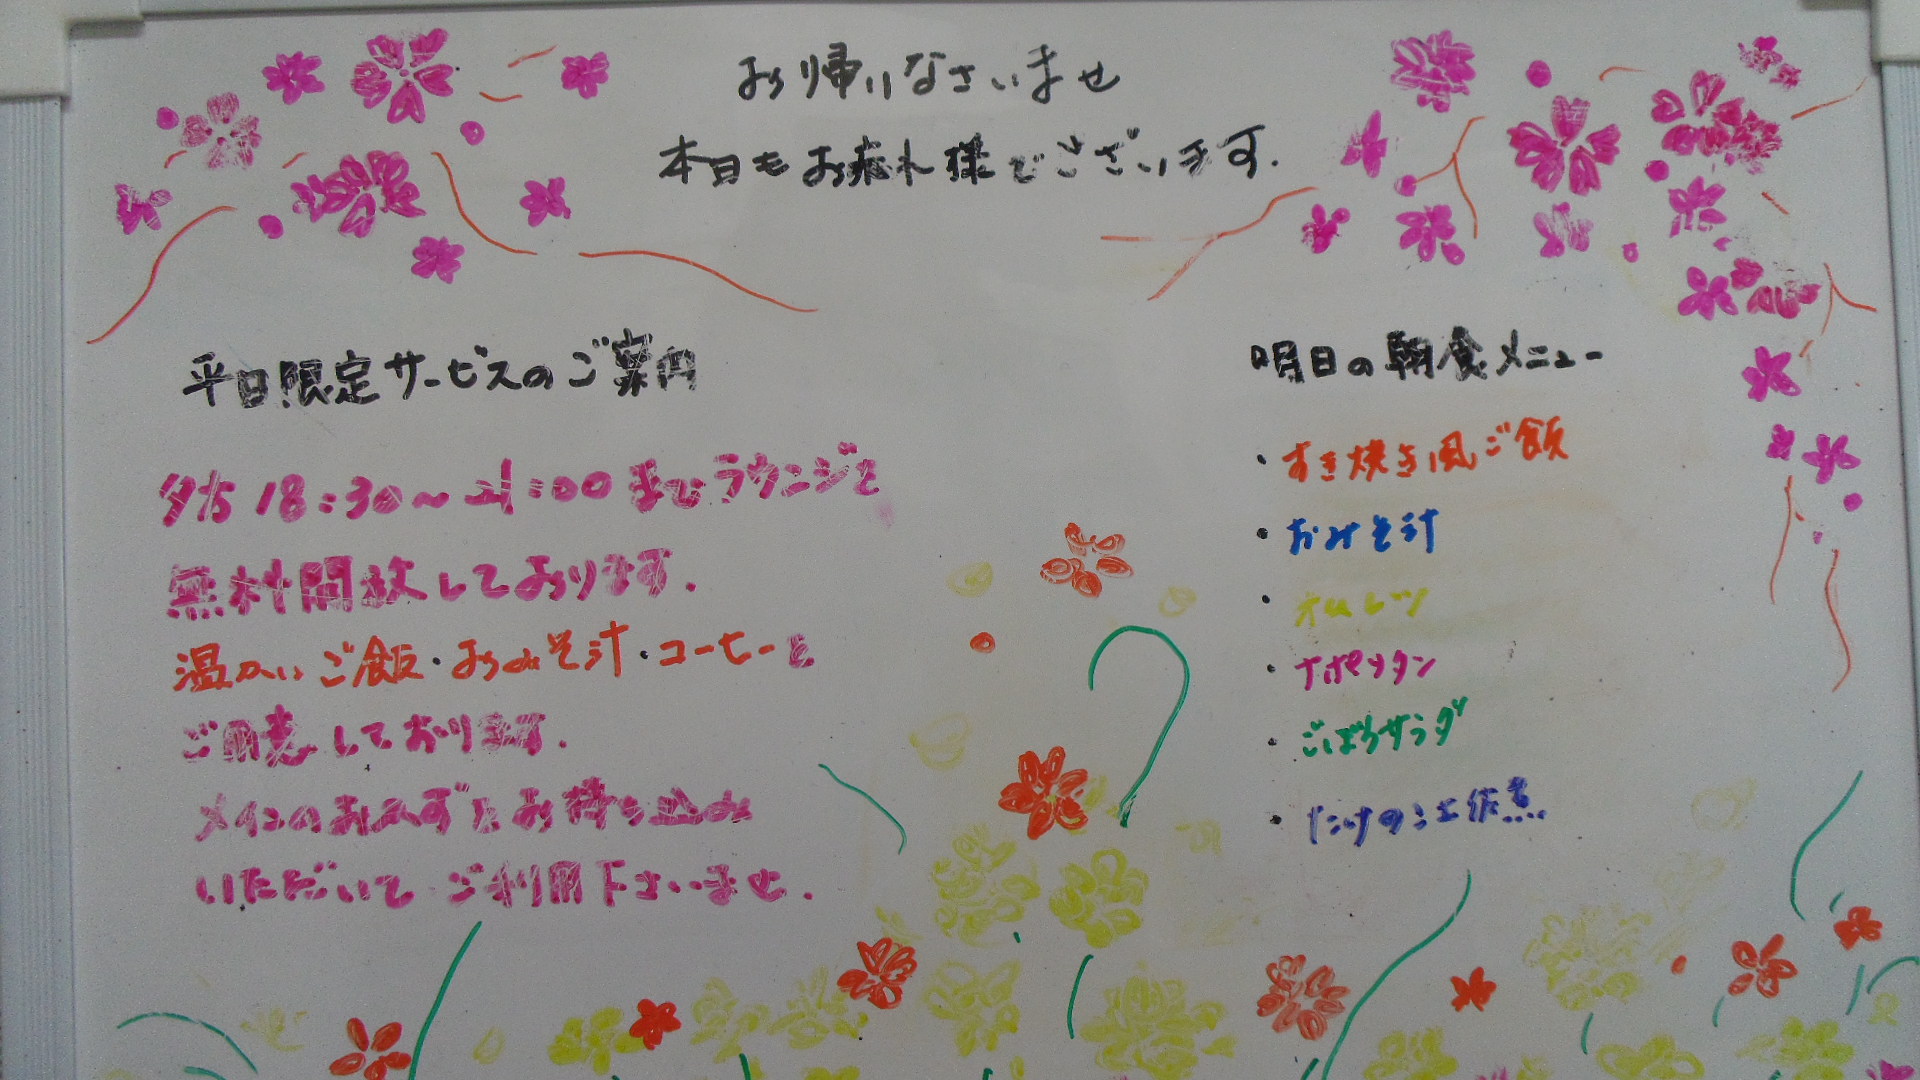 お帰りなさいませ
本日もお疲れ様でございます.
平日限定サービスのご案内
夕方18:30～21:00までラウンジを
無料開放しております.
温かいご飯・おみそ汁・コーヒーを
ご用意しております.
メインのおかずをお持ち込み
いただいてご利用下さいませ.
明日の朝食メニュー
・すき焼き風ご飯
・おみそ汁
・オムレツ
・ナポリタン
・ごぼうサラダ
・たけのこ土佐煮